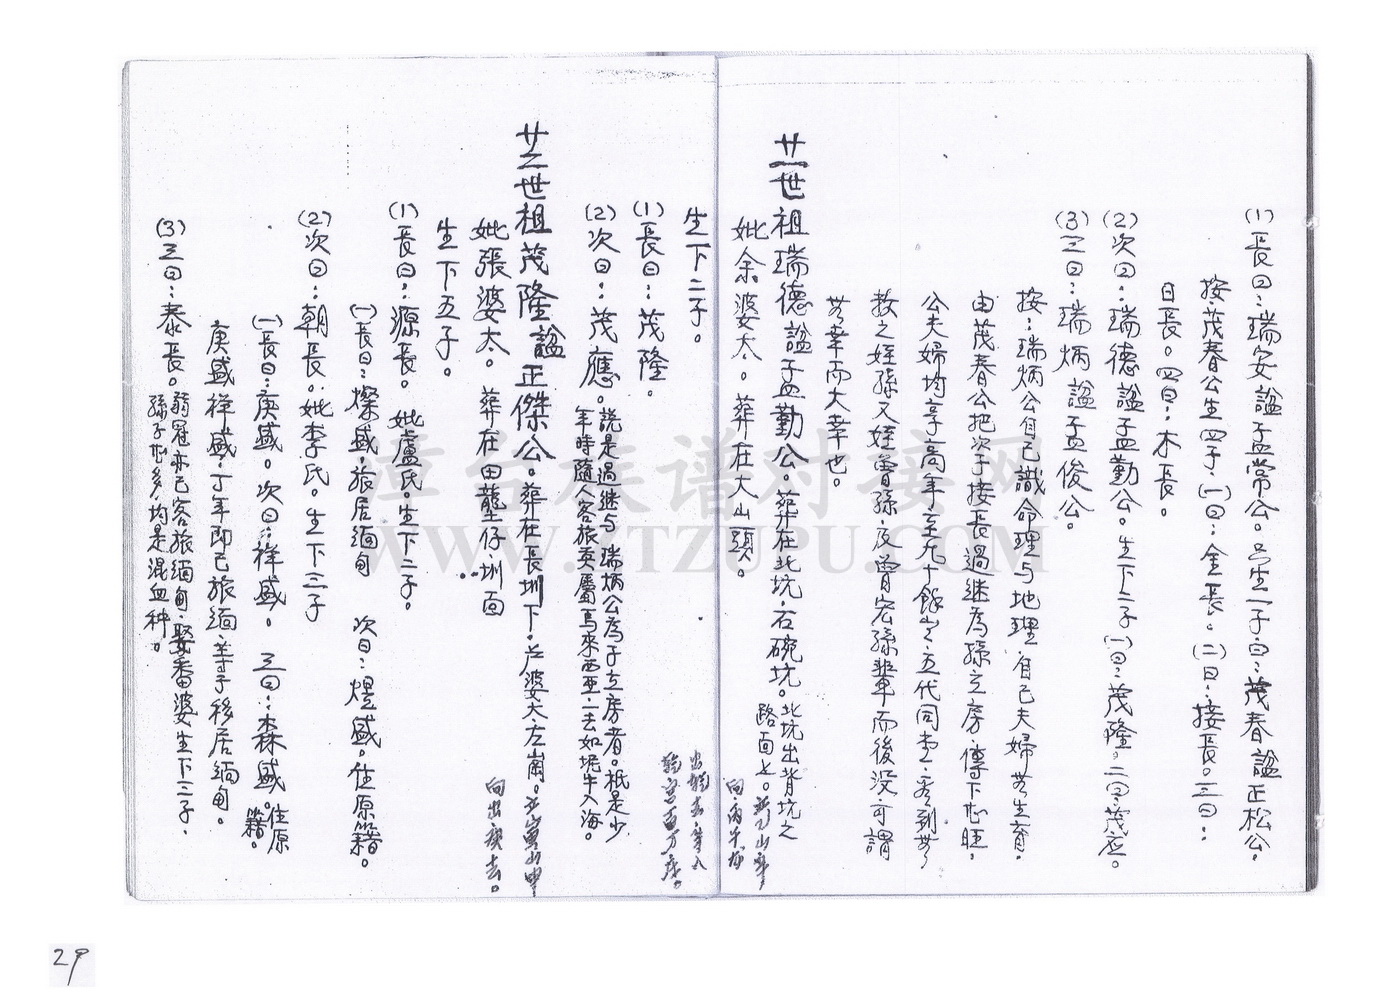 (1)長曰：瑞安諡孟常公。只生一子曰：茂春諡正松公，
按：茂春公生四子：(一)曰：金長。(二)曰：接長。三曰：
日長。四曰：木長。
(2)次曰：瑞德諡孟勤公。生下二子(一)曰：茂隆。二曰：茂应。
(3)三曰：瑞炳諡孟俊公。
按：瑞炳公自己識命理与地理，自己夫婦無生育，
由茂春公把次子接長過继為孫立房，傳下也旺，
公夫婦均享高年至九十餘岁，五代同堂，看到
按之姪孫又姪曾孫，及曾玄孫輩而後没可謂
無幸而大幸也。
廿一世祖瑞德諡孟勤公。葬在北坑，石碗坑。北坑出背坑之
路面上。
妣余婆太。葬在大山頭。
生下二子。
(1)長曰：茂隆。
(2)次曰：茂應。説是過继与瑞炳公為子立房者。祇是少
年時隨人客旅英屬馬來西亜，一去如坭牛入海。
廿二世祖茂隆諡正傑公。葬在長圳下，丘婆太，左崗。
妣張婆太。葬在田蘢仔圳面
向出庚去。
生下五子。
(1)長曰：源長。妣盧氏。生下二子。
(一)長曰：燦盛，旅居緬甸 次曰：焜盛。住原籍。
(2)次曰：朝長。妣李氏。生下三子
(一)長曰：庚盛。次曰：祥盛。三曰：森盛。住原籍。
庚盛祥盛，丁年即已旅緬，並手移居緬甸。
(3)三曰：泰長。弱冠亦已客旅缅甸，娶番婆生下三子，
孫子也多，均是混血种。
漳台族谱对接网
WWW.ZTZUPU.COM
29